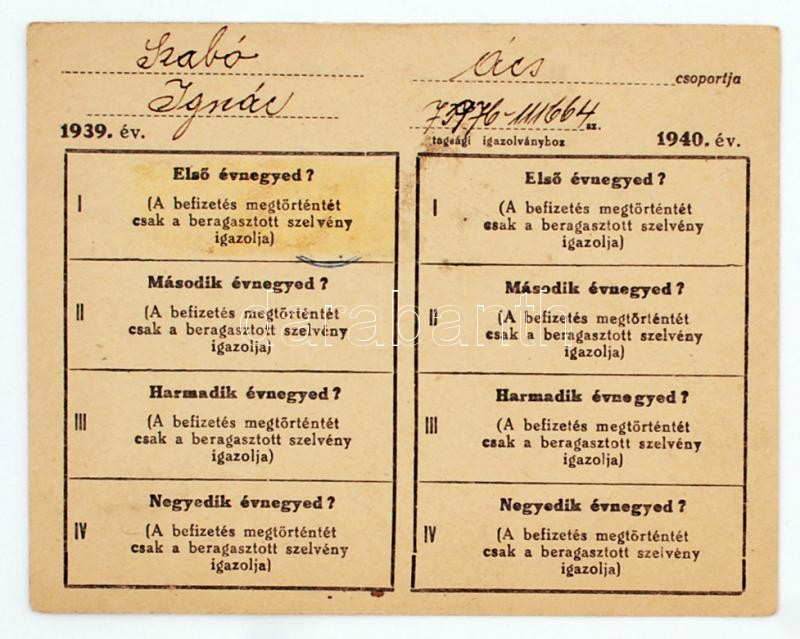 Szabó
Ignác
1939. év.
Ács csoportja
sz.
tagsági igazolványhoz
1940. év.
I
Első évnegyed?
(A befizetés megtörténtét
csak a beragasztott szelvény
igazolja)
II
Második évnegyed?
(A befizetés megtörténtét
csak a beragasztott szelvény
igazolja)
III
Harmadik évnegyed?
(A befizetés megtörténtét
csak a beragasztott szelvény
igazolja)
IV
Negyedik évnegyed?
(A befizetés megtörténtét
csak a beragasztott szelvény
igazolja)
I
Első évnegyed?
(A befizetés megtörténtét
csak a beragasztott szelvény
igazolja)
II
Második évnegyed?
(A befizetés megtörténtét
csak a beragasztott szelvény
igazolja)
III
Harmadik évnegyed?
(A befizetés megtörténtét
csak a beragasztott szelvény
igazolja)
IV
Negyedik évnegyed?
(A befizetés megtörténtét
csak a beragasztott szelvény
igazolja)
darabanth